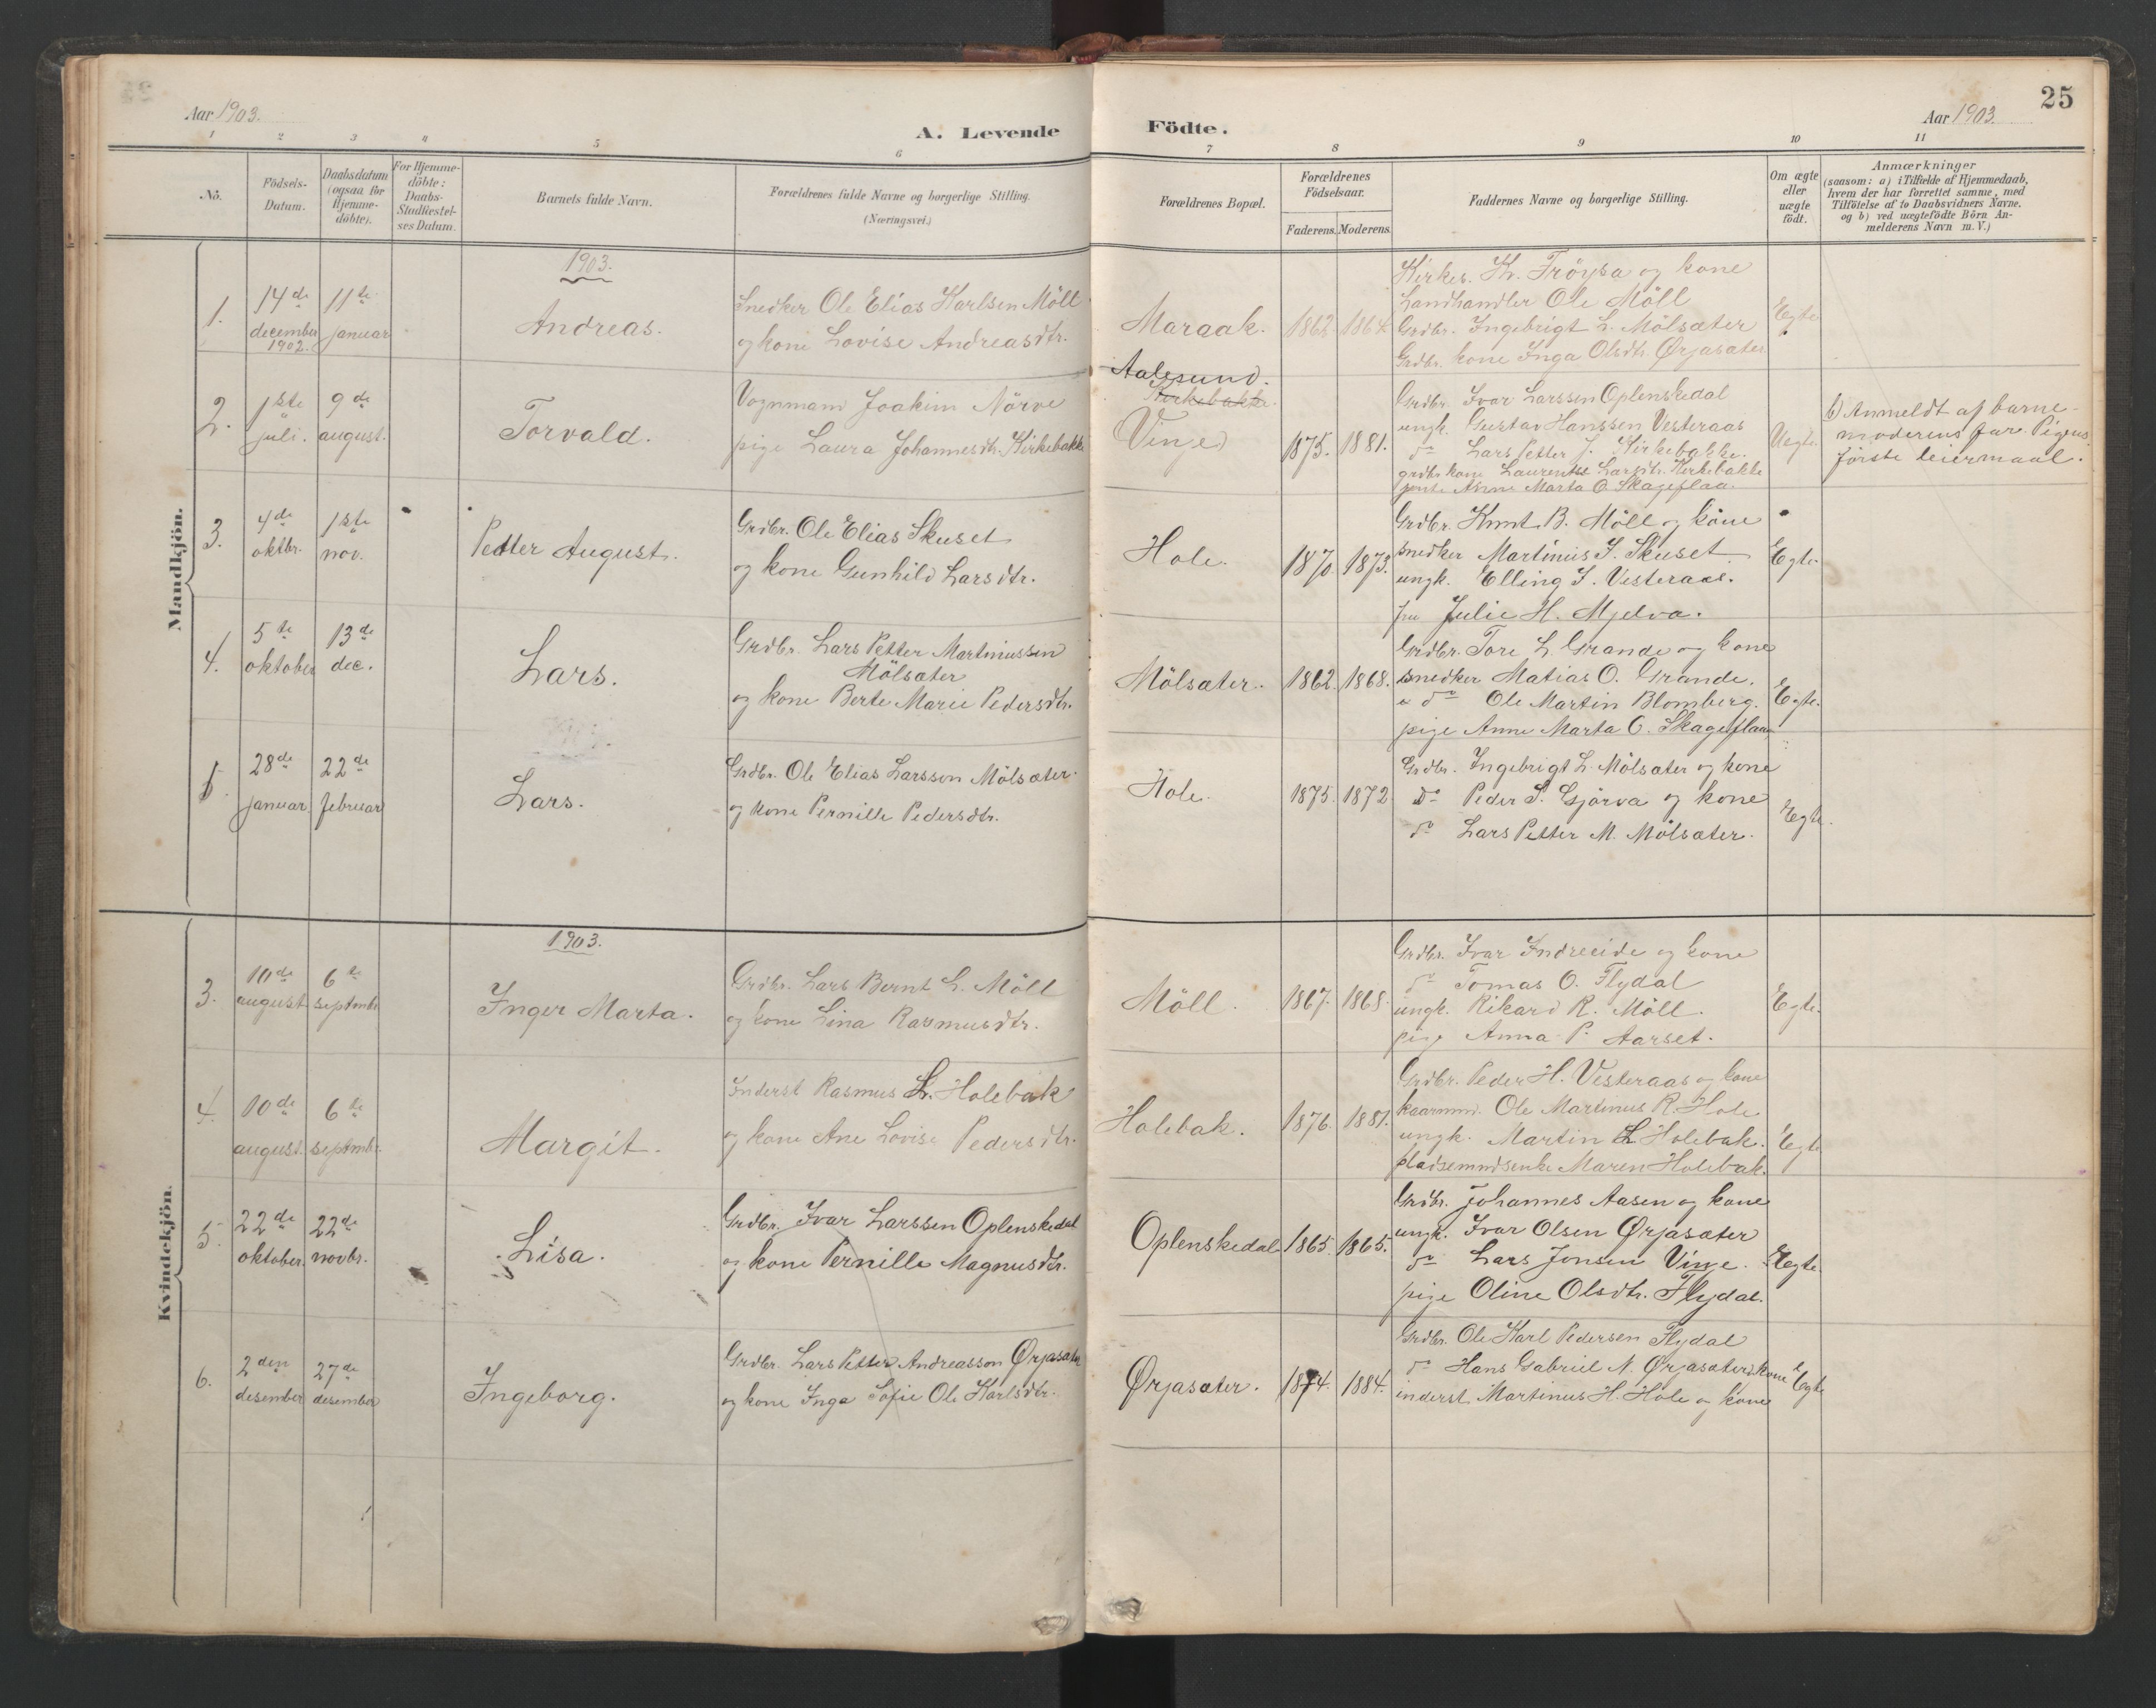 Aar 1903.
A. Levende
Födte.
Aar 1903.
25
1 2 3 4 5 6 7 8 9 10 11
No.
Födsels-
Datum.
Daabsdatum
(ogsaa for
Hjemme-
döbte).
For Hjemme-
döbte:
Daabs-
Stadfæstel-
ses Datum.
Barnets fulde Navn.
Forældrenes fulde Navne og borgerlige Stilling.
(Næringsvei.)
Forældrenes Bopæl.
Forældrenes
Födselsaar.
Faderens. Moderens.
Faddernes Navne og borgerlige Stilling.
Om ægte
eller
uægte
födt.
Anmærkninger
(saasom: a) i Tilfælde af Hjemmedaab,
hvem der har forrettet samme, med
Tilföielse af to Daabsvidners Navne.
og b) ved uægtefödte Börn An-
melderens Navn m. V.)
Mandkjön.
1903.
1.
14de
december
1902.
11te
januar
Andreas.
Snedker Ole Elias Karlsen Möll
og kone Lovise Andreasdtr.
Maraak.
1862 1864
Kirkes. Kr. Fröysa og kone
Landhandler Ole Möll
Grdbr. Ingebrigt L. Mölsæter
Grdbr. kone Inga Olsdtr. Ørjasæter
Egte
2.
1ste
juli.
9de
august.
Torvald.
Vognmand Joakim Nörve
pige Laura Johannesdtr. Kirkebakke
Aalesund.
Kirkebakke.
Vinje
1875. 1881.
Grdbr. Ivar Larssen Oplenskedal
ungk. Gustav Hanssen Vesteraas
do Lars Petter J. Kirkebakke.
grdbr kone Laurentse Larsdtr. Kirkebakke
jente Anne Marta O. Skageflaa.
Uegte.
b) Anmeldt af barne-
moderens far. Pigens
förste leiermaal.
3.
4de
oktbr.
1ste
nov.
Petter August.
Grdbr. Ole Elias Skuset
og kone Gunhild Larsdtr.
Hole.
1870. 1873.
Grdbr. Knut B. Möll og kone
snedker Martinus I. Skuset
ungk. Elling I. Vesteraas.
fru Julie H. Mjelva.
Egte.
4.
5te
oktober
13de
dec.
Lars.
Grdbr. Lars Petter Martinussen
Mölsæter
og kone Berte Marie Pedersdtr.
Mölsæter.
1862. 1868.
Grdbr. Tore L. Grande og kone
snedker Matias O. Grande.
do Ole Martin Blomberg.
pige Anne Marta O. Skageflaa
Egte.
5.
28de
januar
22de
februar
Lars.
Grdbr. Ole Elias Larsson Mölsæter
og kone Pernille Pedersdtr.
Hole.
1875. 1872
Grdbr. Ingebrigt L. Mölsæter og kone
Do Peder S. Gjörva og kone
do Lars Petter M. Mölsæter.
Egte.
Kvindekjön.
1903.
3.
10de
august
6te
septmbr
Inger Marta.
Grdbr. Lars Bernt L. Möll
og kone Lina Rasmusdtr.
Möll.
1867. 1868
Grdbr. Ivar Indreeide og kone
do Tomas O. Flydal
ungk. Rikard R. Möll.
pige Anna P. Aarset.
Egte.
4.
10de
august.
6te
septmbr.
Margit.
Inderst Rasmus L. Holebak
og kone Ane Lovise Pedersdtr.
Holebak.
1876. 1881.
Grdbr. Peder H. Vesteraas og kone
kaarmnd. Ole Martinus R. Hole
ungk. Martin L. Holebak.
pladsemndsenke Maren Holebak.
Egte
5.
22de
oktober.
22de
novbr.
Lisa.
Grdbr. Ivar Larssen Oplenskedal
og kone Pernille Magnusdtr.
Oplenskedal
1865. 1865.
Grdbr. Johannes Aasen og kone
ungk. Ivar Olsen Ørjasæter
do Lars Jonsen Vinje.
pige Oline Olsdtr. Flydal.
Egte.
6.
2den
desember
27de
desember
Ingeborg.
Grdbr. Lars Petter Andreasson Ørjasæter
og kone Inga Sofie Ole Karlsdtr.
Ørjasæter.
1874. 1884.
Grdbr. Ole Karl Pedersen Flydal
do Hans Gabriel N. Ørjasæter kone
inderst Martinus H. Hole og kone
Egte